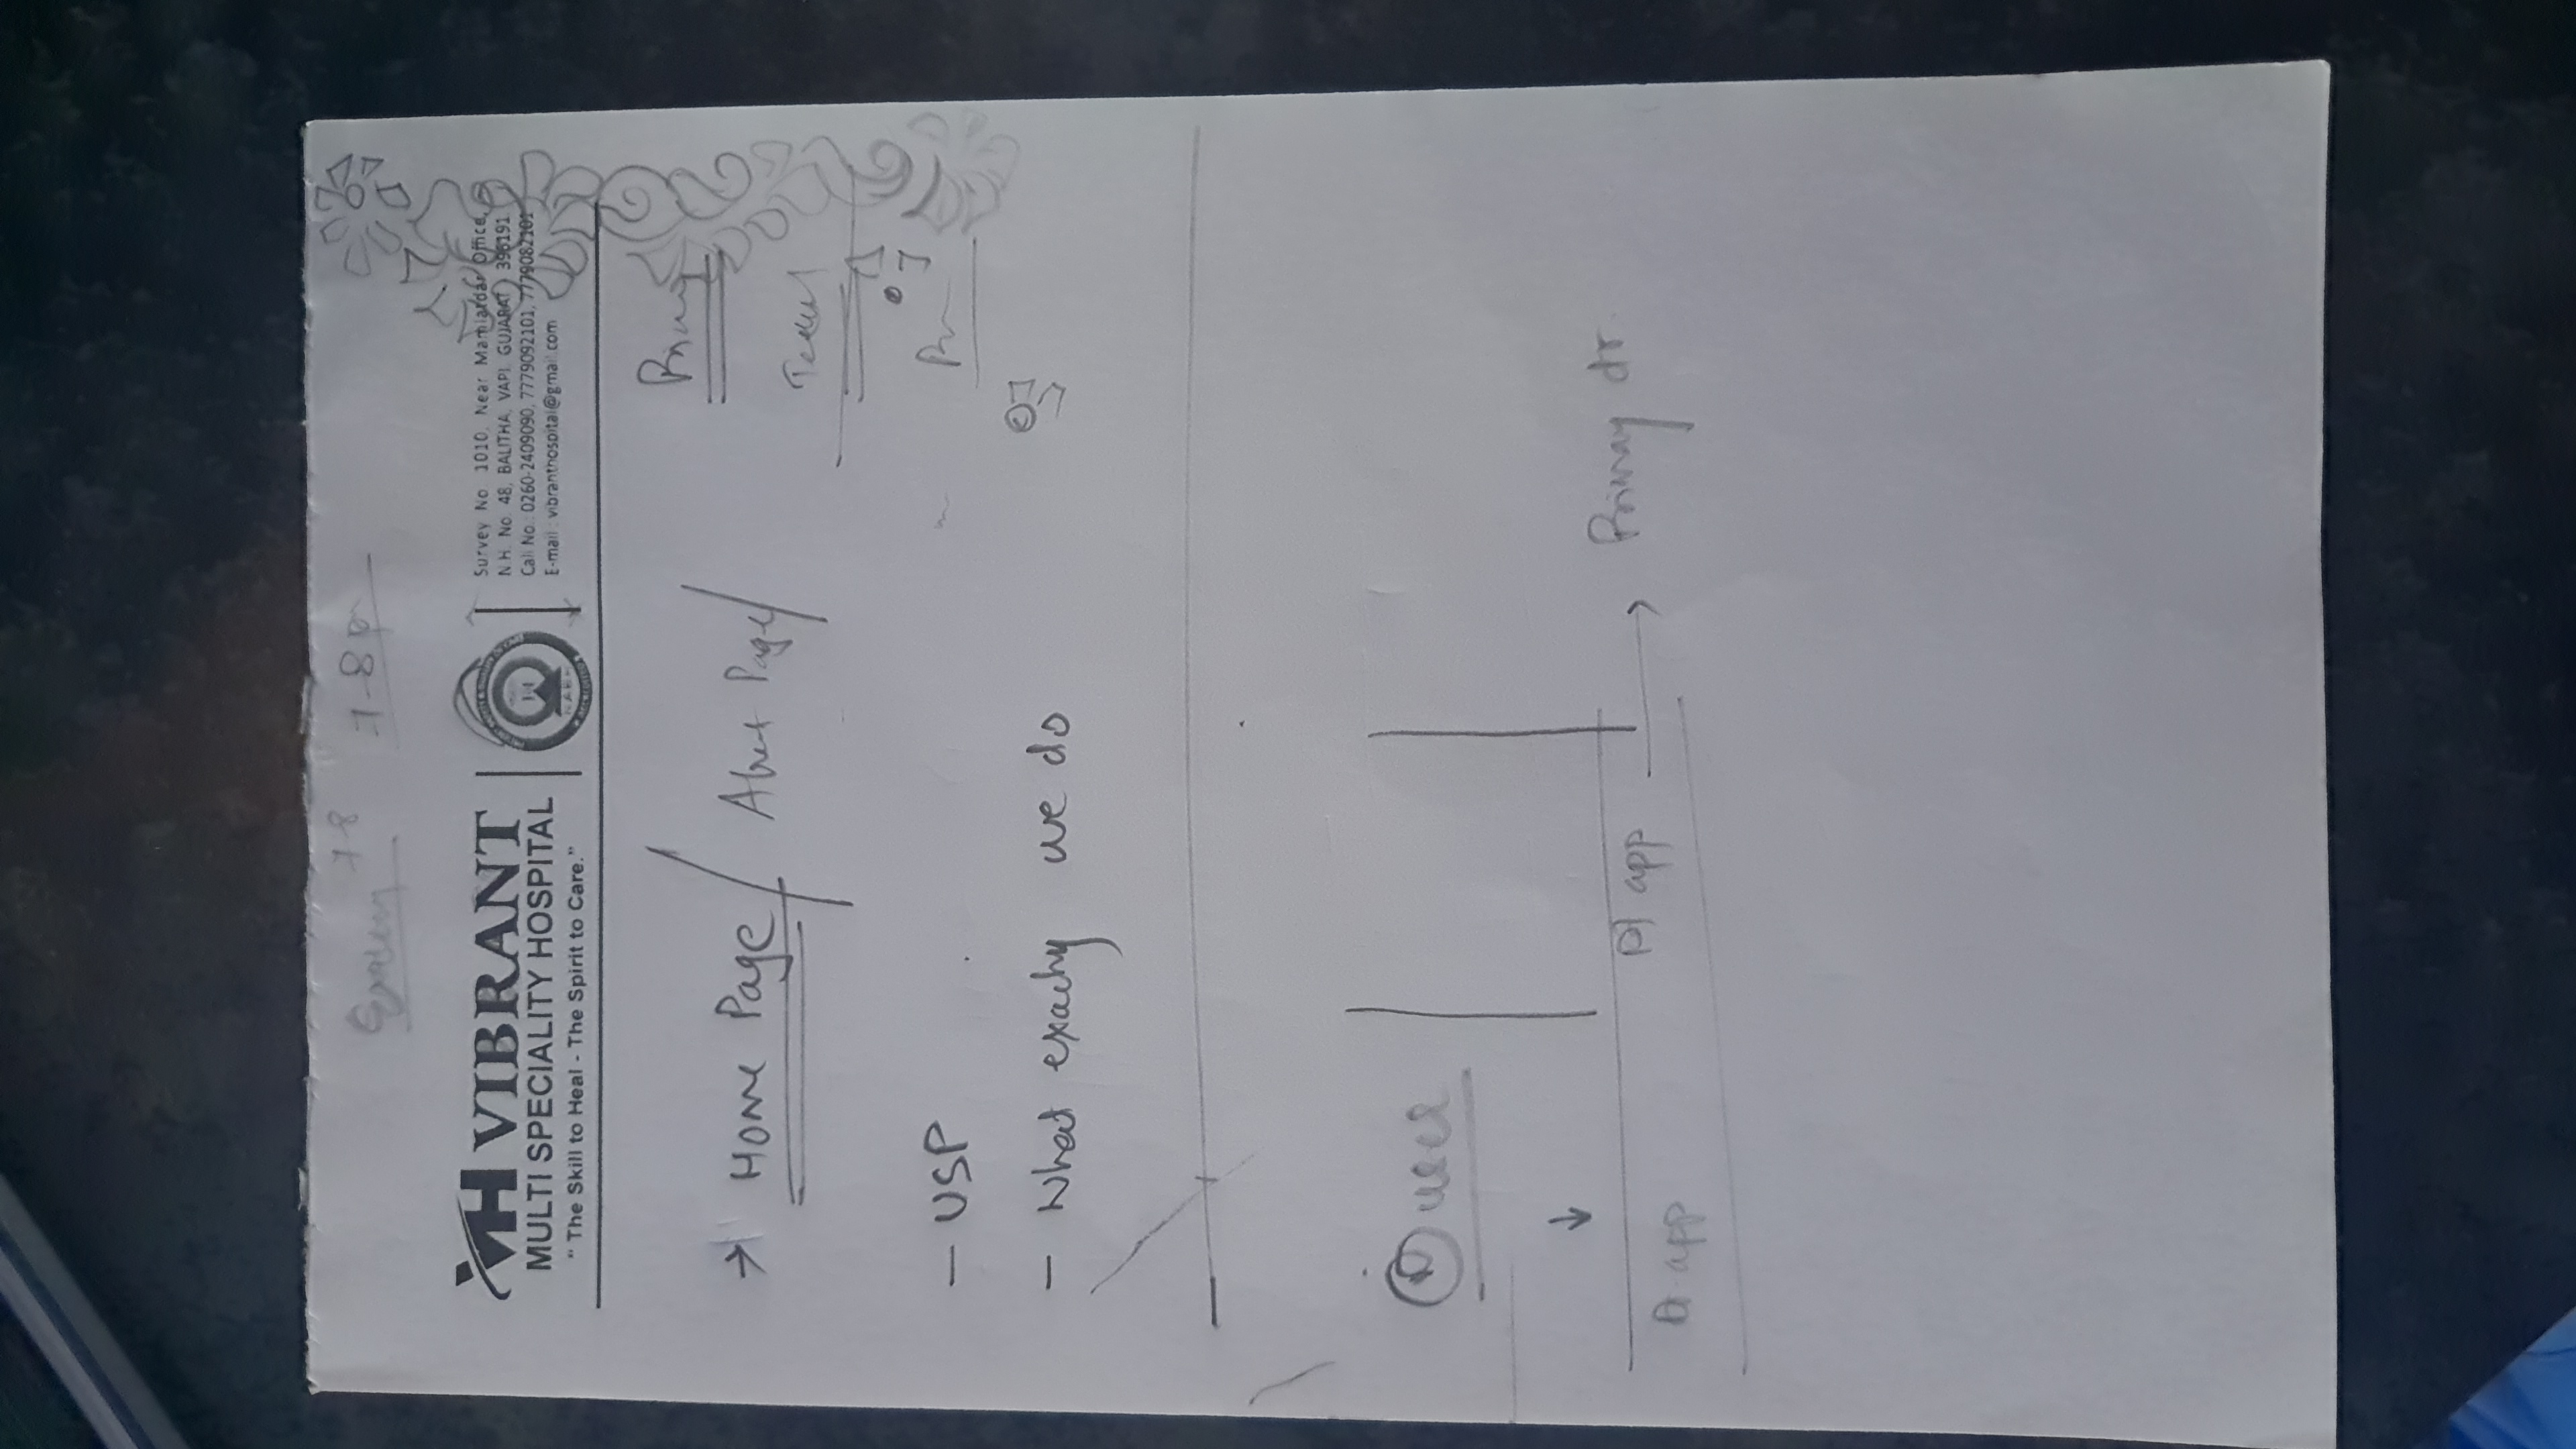 7-8 7-8p
VIBRANT
MULTI SPECIALITY HOSPITAL
" The Skill to Heal - The Spirit to Care."
NABH
ACCREDITED
Survey No. 1010, Near Mamlatdar Office,
N.H. No. 48, BALITHA, VAPI. GUJARAT) 396191
Call No.: 0260-2409090, 7779092101, 7779082101
E-mail : vibranthospital@gmail.com
→ Home Page / About Page /
Primary
- USP
- What exactly we do
user
↓
app
app → Primary dr.